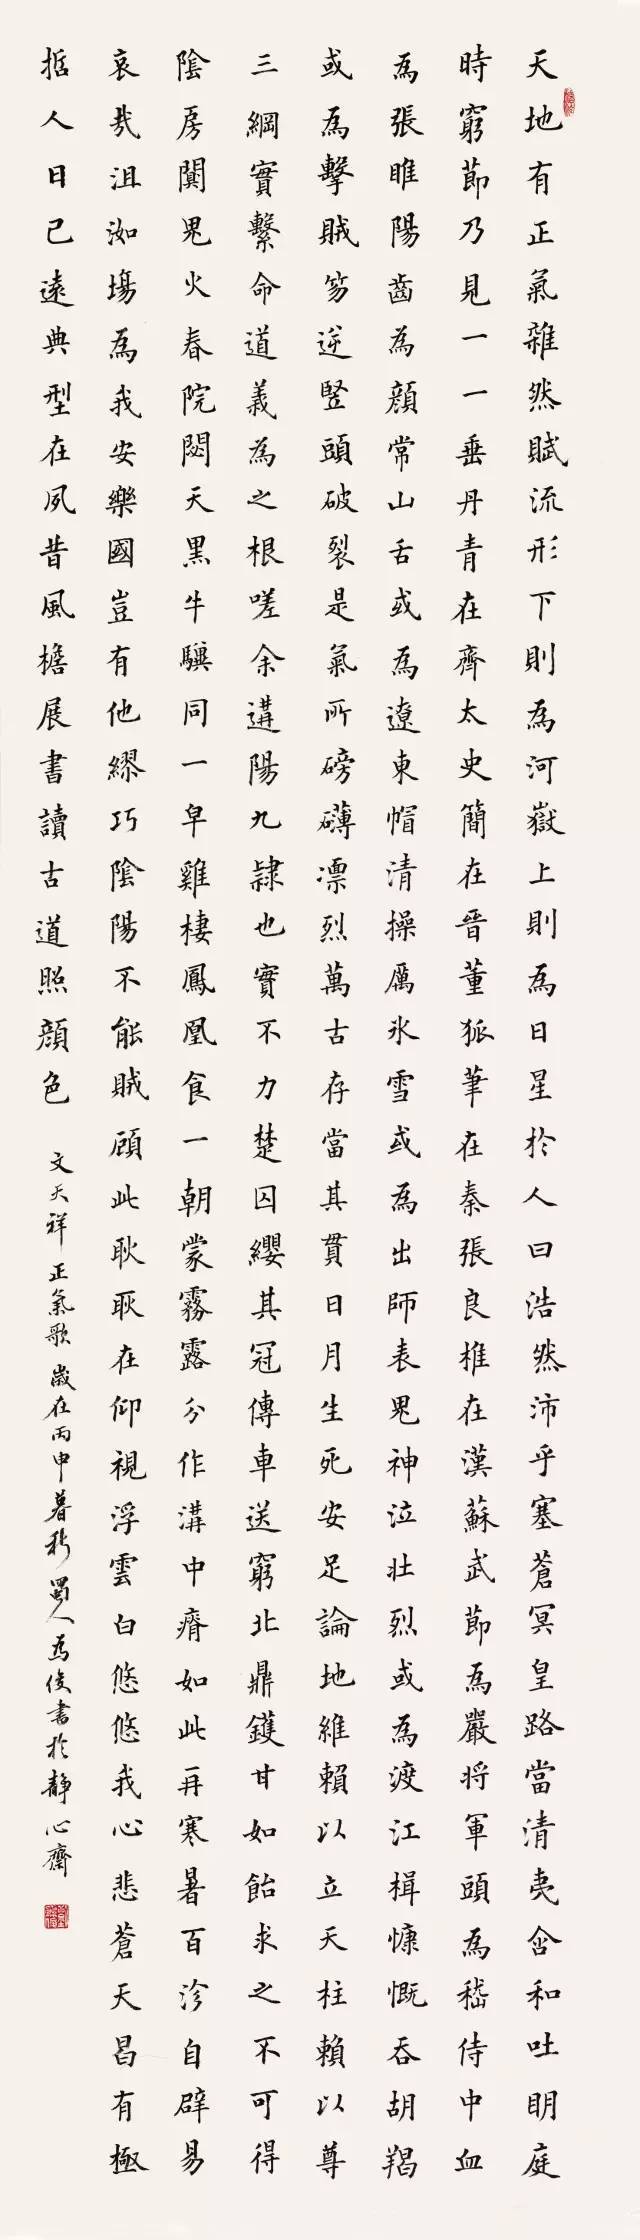 天地有正氣雜然賦流形下則為河嶽上則為日星於人曰浩然沛乎塞蒼冥皇路當清夷含和吐明庭
時窮節乃見一一垂丹青在齊太史簡在晉董狐筆在秦張良椎在漢蘇武節為嚴將軍頭為嵇侍中血
為張睢陽齒為顏常山舌或為遼東帽清操厲冰雪或為出師表鬼神泣壯烈或為渡江楫慷慨吞胡羯
或為擊賊笏逆豎頭破裂是氣所磅礴凜烈萬古存當其貫日月生死安足論地維賴以立天柱賴以尊
三綱實繫命道義為之根嗟余遘陽九隸也實不力楚囚纓其冠傳車送窮北鼎鑊甘如飴求之不可得
陰房闃鬼火春院閟天黑牛驥同一皁雞棲鳳凰食一朝蒙霧露分作溝中瘠如此再寒暑百沴自辟易
哀哉沮洳場為我安樂國豈有他繆巧陰陽不能賊顧此耿耿在仰視浮雲白悠悠我心悲蒼天曷有極
哲人日已遠典型在夙昔風檐展書讀古道照顏色
文天祥正氣歌歲在丙申暮秋蜀人俊書於靜心齋